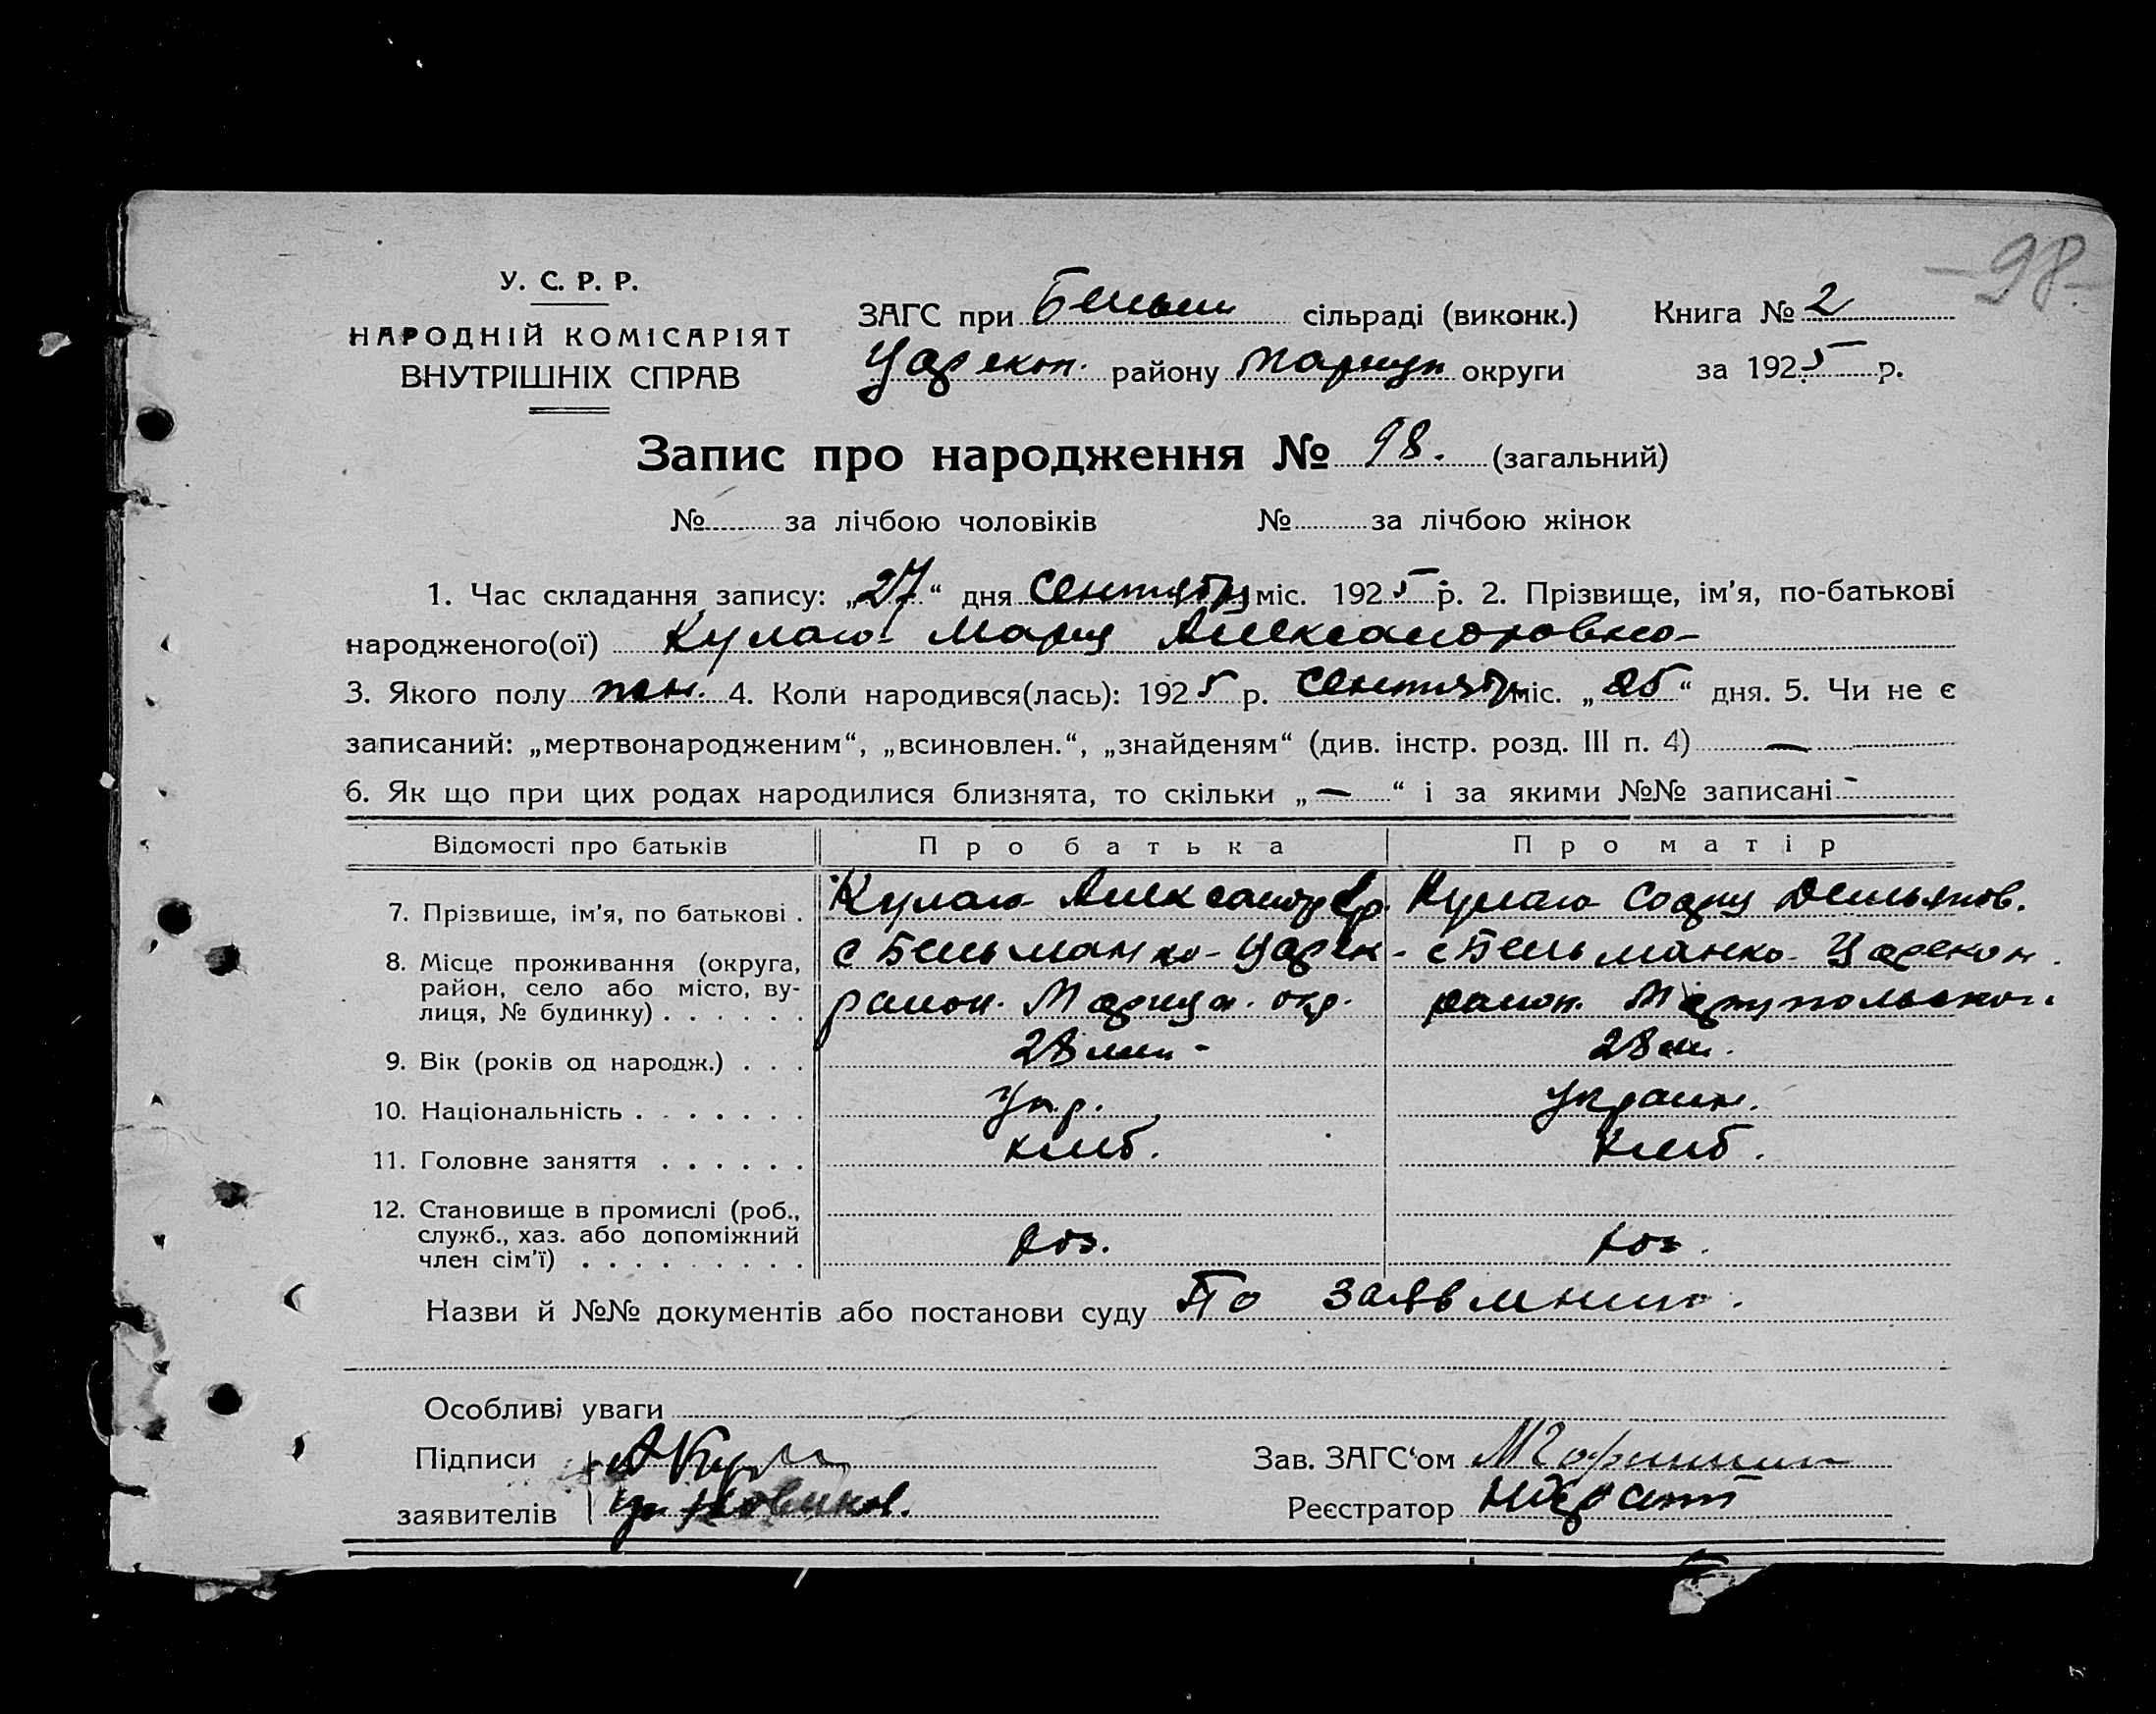 98.
У. С. Р. Р.
НАРОДНІЙ КОМІСАРІЯТ
ВНУТРІШНІХ СПРАВ
ЗАГС при Бельм сільраді (виконк.) Книга № 2
Царекон. району Мариуп округи за 1925 р.
Запис про народження № 98. (загальний)
№ за лічбою чоловіків № за лічбою жінок
1. Час складання запису: „27“ дня Сентября міс. 1925 р. 2. Прізвище, ім'я, по-батькові
народженого(ої) Кулага Мария Александровна
3. Якого полу жен. 4. Коли народився(лась): 1925 р. Сентября міс. „25“ дня. 5. Чи не є
записаний: „мертвонародженим“, „всиновлен.“, „знайденям“ (див. інстр. розд. III п. 4) —
6. Як що при цих родах народилися близнята, то скільки „—“ і за якими №№ записані -
Відомості про батьків Про батька Про матір
7. Прізвище, ім'я, по батькові . Кулага Александр Кулага Демьянов.
8. Місце проживання (округа, район, село або місто, вулиця, № будинку) . . . . . . с Бельманка - Царек - с Бельманка - Царекон.
район. Мариуп. окр. район. Мариупольской.
9. Вік (років од народж.) . . . 28 лет - 28 лет.
10. Національність . . . . . . . Укр. Украин.
11. Головне заняття . . . . . . хлеб. хлеб.
12. Становище в промислі (роб.,
служб., хаз. або допоміжний
член сім'ї) . . . . . . . . . хоз. хоз.
Назви й №№ документів або постанови суду По заявлению.
Особливі уваги
Підписи Зав. ЗАГС'ом
заявителів Реєстратор